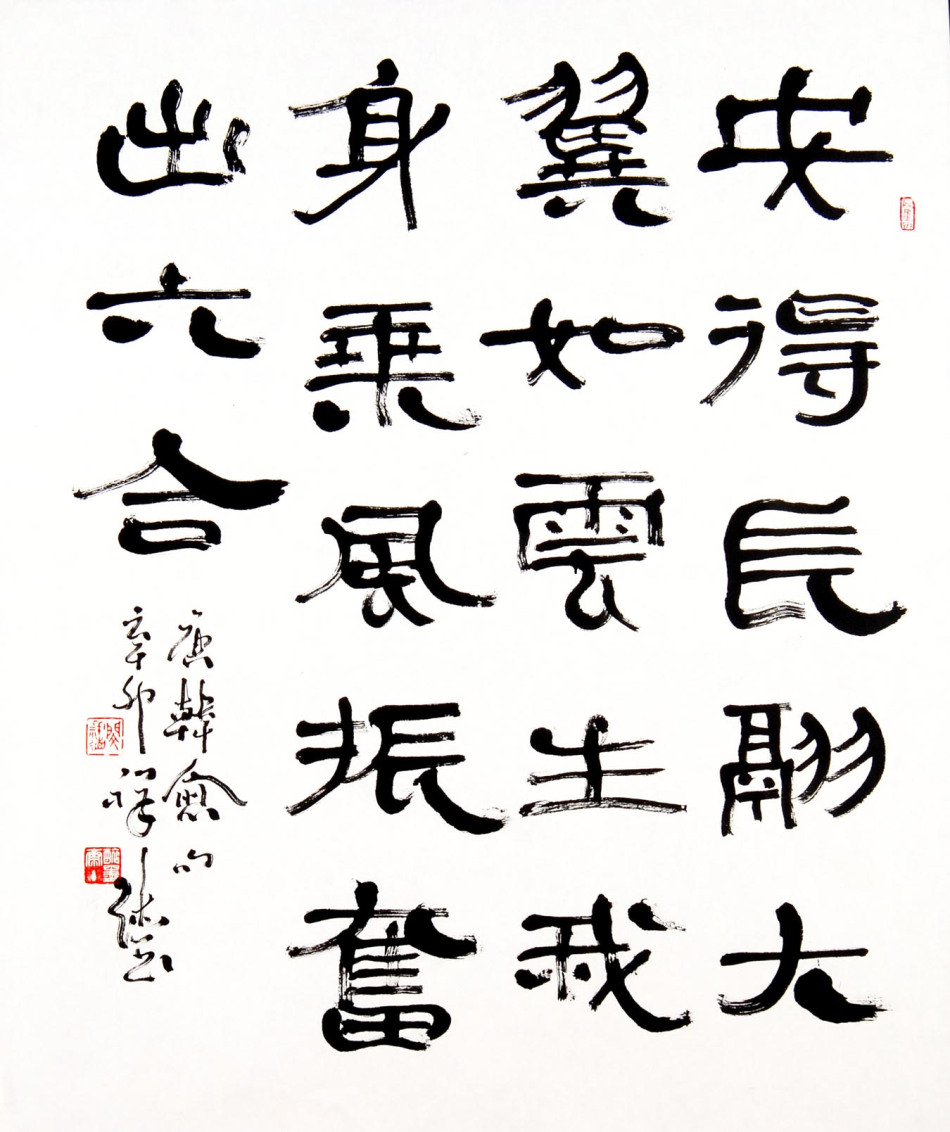 安得長翮大
翼如雲生我
身乘風振奮
出六合
唐韓愈句
辛卯祥